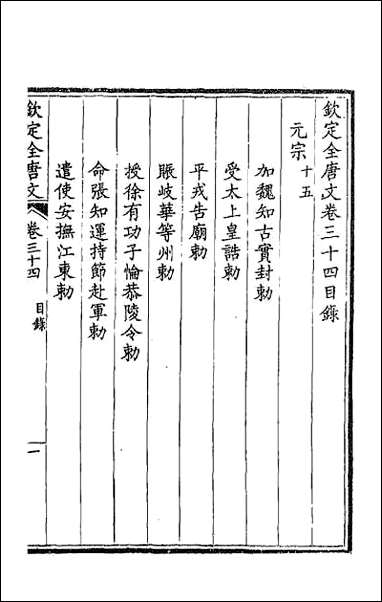 欽定全唐文卷三十四目錄
元宗十五
加魏知古實封敕
受太上皇誥敕
平戎告廟敕
賑岐華等州敕
授徐有功子惀恭陵令敕
命張知運持節赴軍敕
遣使安撫江東敕
欽定全唐文 卷三十四 目錄 一